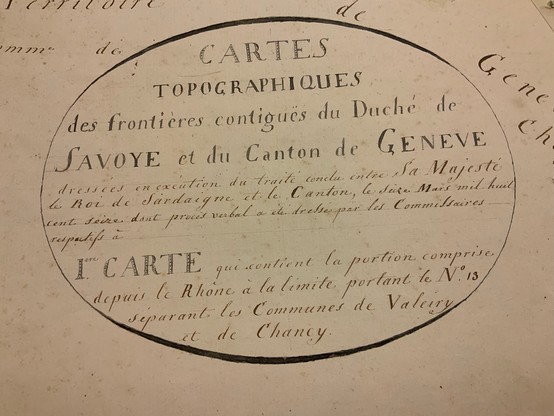 Territoire de
Comm.ne de
Gene
Cha
CARTES
TOPOGRAPHIQUES
des frontières contiguës du Duché de
SAVOYE et du Canton de GENEVE
dressées en execution du traité conclu entre Sa Majesté
le Roi de Sardaigne et le Canton, le seize Mars mil huit
cent seize dont procès verbal a été dressé par les Commissaires
respectifs à
I.ere CARTE qui contient la portion comprise
depuis le Rhône à la limite, portant le N.º 13
séparant les Communes de Valeiry
et de Chancy.